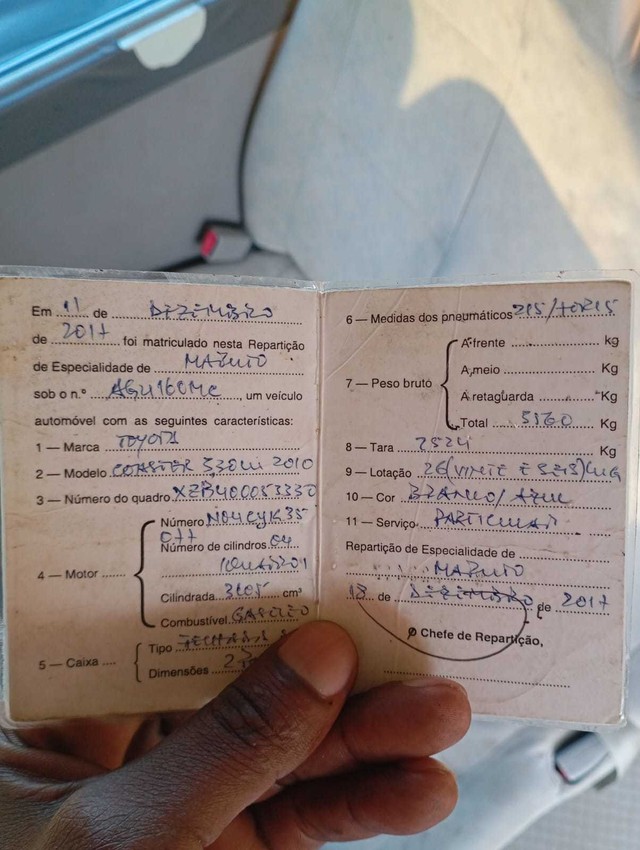 Em 11 de DEZEMBRO
de 2017 foi matriculado nesta Repartição
de Especialidade de MAPUTO
sob o n.º AGU160MC, um veículo
automóvel com as seguintes características:
1 — Marca TOYOTA
2 — Modelo COASTER 2010
3 — Número do quadro XZB400053330
4 — Motor
Número N04CYK35
077
Número de cilindros 04
(QUATRO)
Cilindrada cm³
Combustível GASOLEO
5 — Caixa
Tipo FECHADA
Dimensões
6 — Medidas dos pneumáticos
7 — Peso bruto
A frente kg
A meio Kg
A retaguarda Kg
Total 5360 Kg
8 — Tara Kg
9 — Lotação 26 (VINTE E SEIS) LUG
10 — Cor BRANCO/AZUL
11 — Serviço PARTICULAR
Repartição de Especialidade de
MAPUTO
18 de DEZEMBRO de 2017
O Chefe de Repartição,